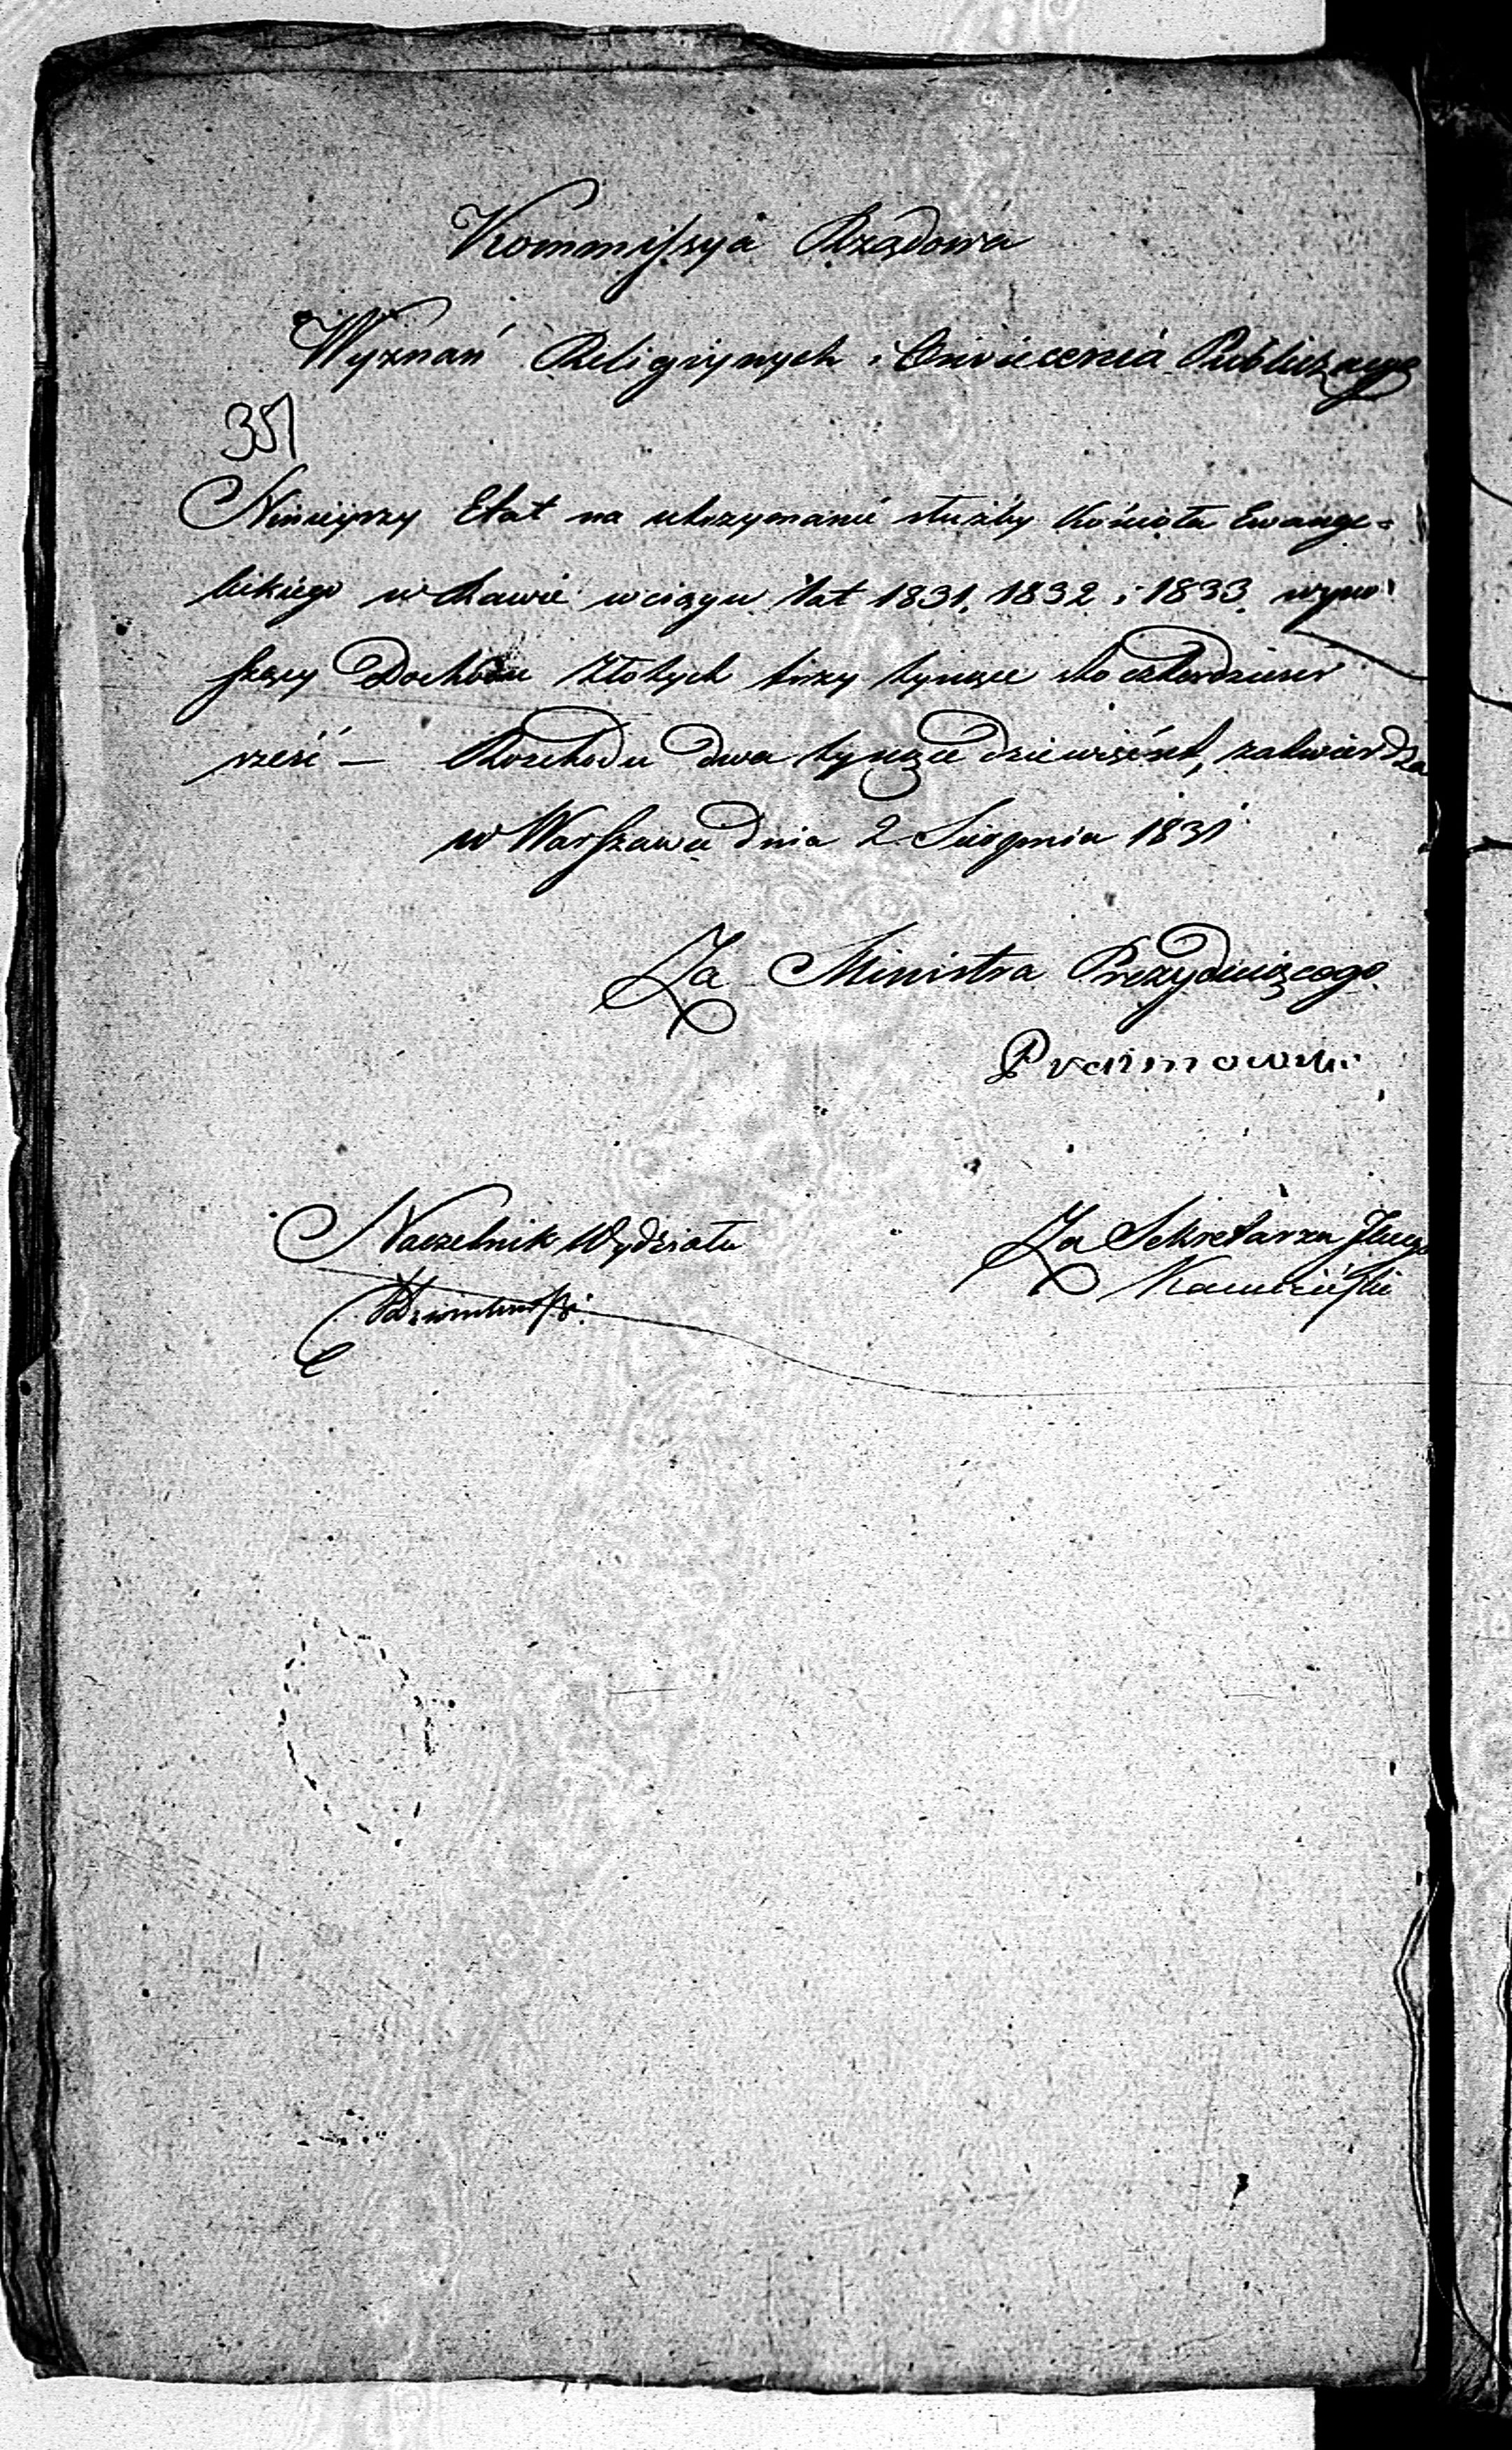 Kommissya Rządowa
Wyznań Religiynych i Oświecenia Publicznego
351
Ninieyszy Etat na utrzymanie służby Kościoła Ewange=
lickiego w Rawie w ciągu lat 1831, 1832 i 1833 wyno
szący Dochodu Złotych trzy tysiące sto czterdzieści
sześć — Rozchodu dwa tysiące dziewięćset, zatwierdza
w Warszawie dnia 2 Sierpnia 1831
Za Ministra Prezyduiącego
Prażmowski
Naczelnik Wydziału Za Sekretarza Jlnego
Kamieński